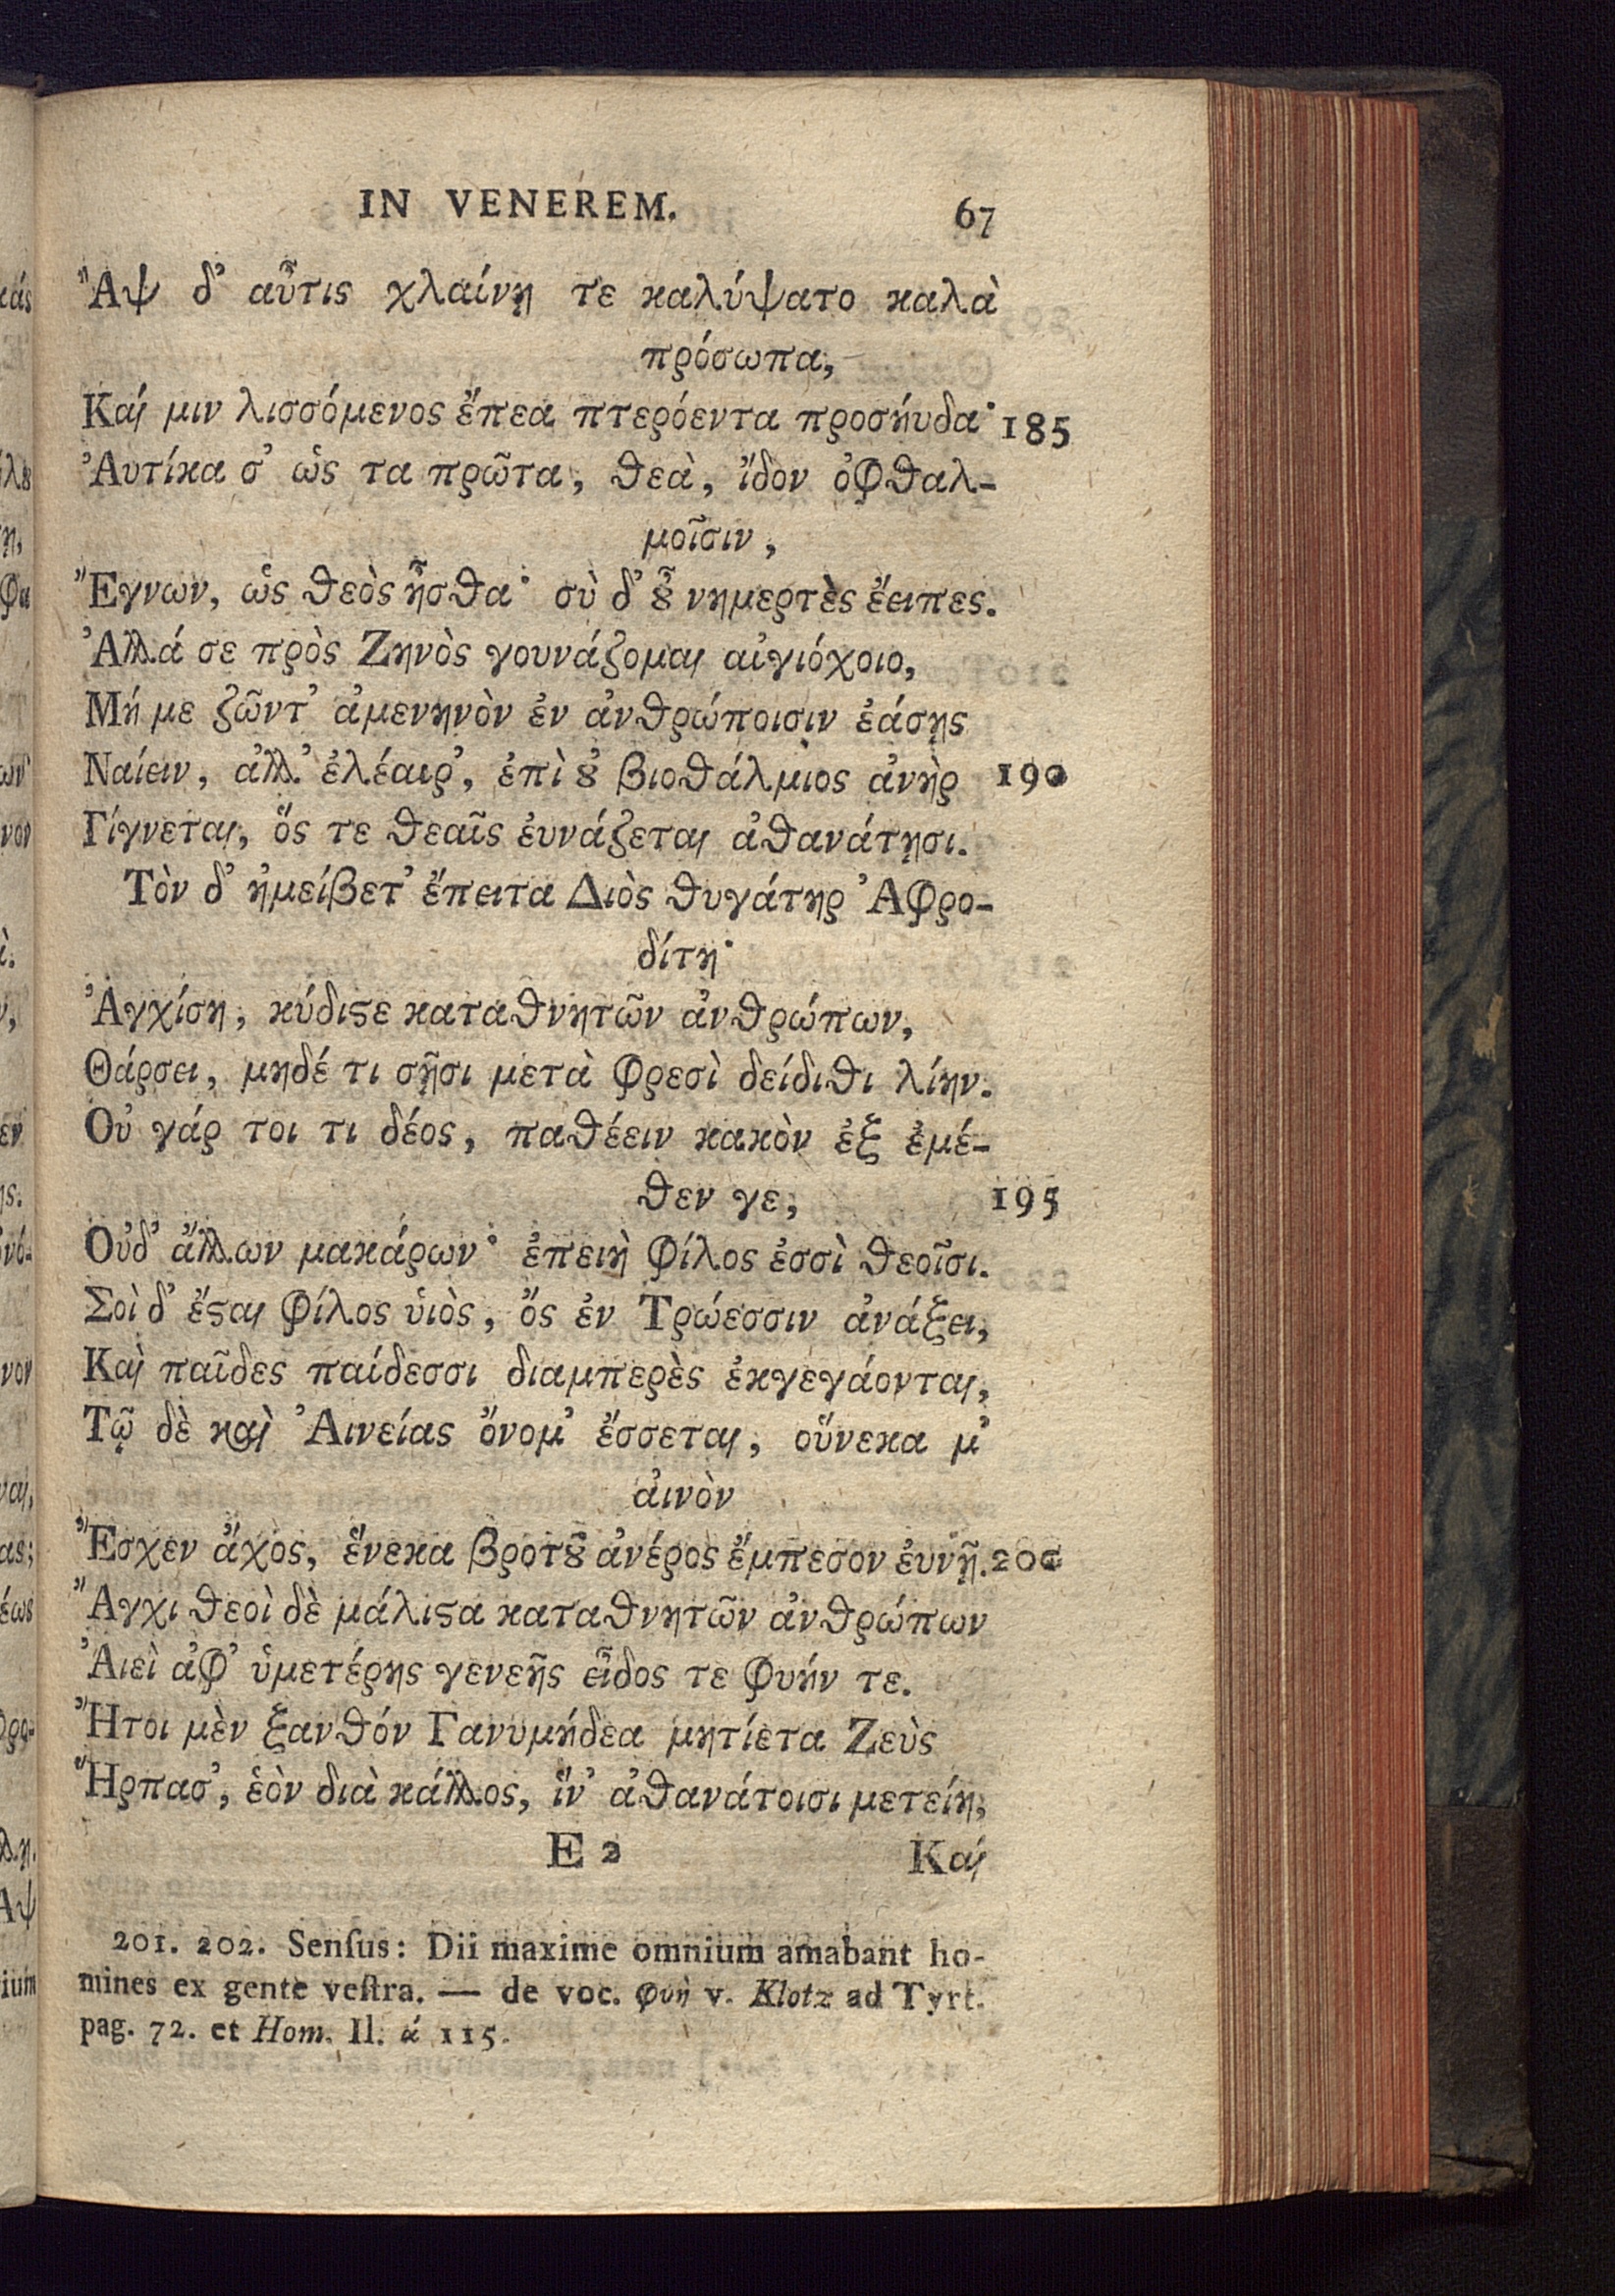 IN VENEREM. 67
Ἂψ δ' αὖτις χλαίνῃ τε καλύψατο καλὰ
πρόσωπα,
Καί μιν λισσόμενος ἔπεα πτερόεντα προσηύδα· 185
Ἀυτίκα σ' ὡς τα πρῶτα, θεὰ, ἴδον ὀφθαλ-
μοῖσιν,
Ἔγνων, ὡς θεὸς ἦσθα· σὺ δ' ȣ̓ νημερτὲς ἔειπες.
Ἀλλά σε πρὸς Ζηνὸς γουνάζομαι αἰγιόχοιο,
Μή με ζῶντ' ἀμενηνὸν ἐν ἀνθρώποισιν ἐάσῃς
Ναίειν, ἀλλ' ἐλέαιρ', ἐπὶ ȣ̓ βιοθάλμιος ἀνὴρ 190
Γίγνεται, ὅς τε θεαῖς ἐυνάζεται ἀθανάτῃσι.
Τὸν δ' ἠμείβετ' ἔπειτα Διὸς θυγάτηρ Ἀφρο-
δίτη·
Ἀγχίση, κύδιϛε καταθνητῶν ἀνθρώπων,
Θάρσει, μηδέ τι σῇσι μετὰ φρεσὶ δείδιθι λίην.
Οὐ γάρ τοι τι δέος, παθέειν κακὸν ἐξ ἐμέ-
θεν γε, 195
Οὐδ' ἄλλων μακάρων· ἐπειὴ φίλος ἐσσὶ θεοῖσι.
Σοὶ δ' ἔϛαι φίλος ὑιὸς, ὃς ἐν Τρώεσσιν ἀνάξει,
Καὶ παῖδες παίδεσσι διαμπερὲς ἐκγεγάονται,
Τῷ δὲ καὶ Ἀινείας ὄνομ' ἔσσεται, οὕνεκα μ'
ἀινὸν
Ἔσχεν ἄχος, ἕνεκα βροτȣ͂ ἀνέρος ἔμπεσον ἐυνῇ. 200
Ἄγχι θεοὶ δὲ μάλιϛα καταθνητῶν ἀνθρώπων
Ἀιεὶ ἀφ' ὑμετέρης γενεῆς εἶδος τε φυήν τε.
Ἤτοι μὲν ξανθόν Γανυμήδεα μητίετα Ζεὺς
Ἥρπασ', ἑὸν διὰ κάλλος, ἵν' ἀθανάτοισι μετείη,
E 2 Καί
201. 202. Senſus: Dii maxime omnium amabant ho-
mines ex gente veſtra. — de voc. φυὴ v. Klotz ad Tyrt.
pag. 72. et Hom. Il. ά 115.